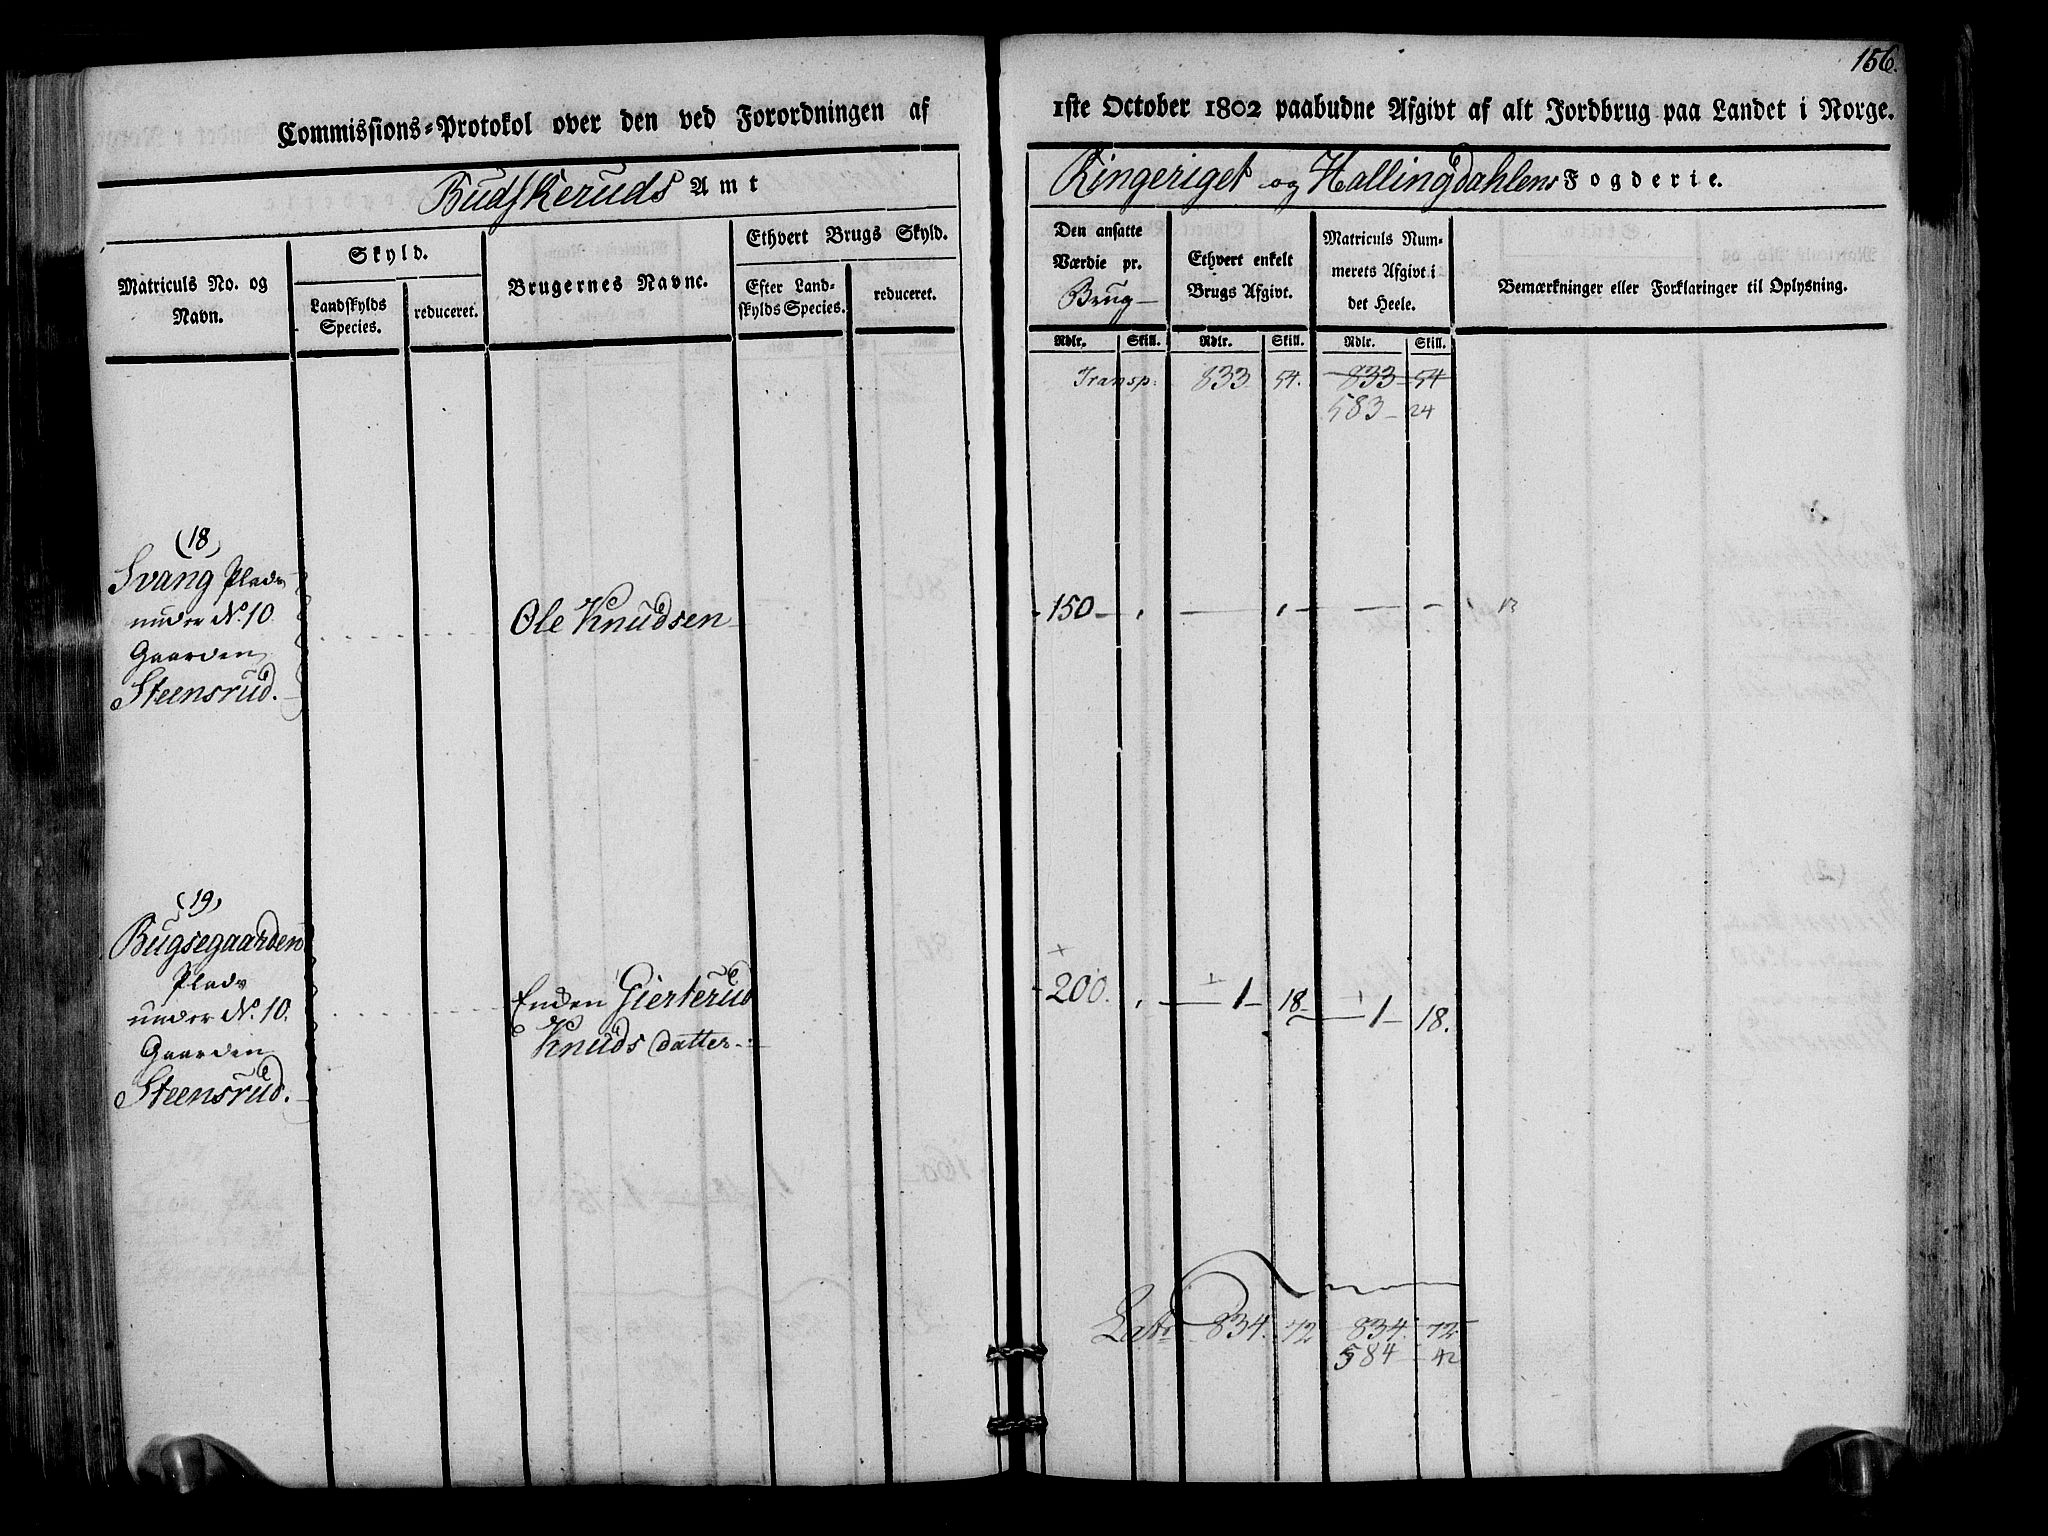 156.
Commissions-Protokol over den ved Forordningen af 1ste October 1802 paabudne Afgivt af alt Jordbrug paa Landet i Norge.
Budskeruds Amt
Ringeriget og Hallingdahlens Fogderie.
Matriculs No. og Navn.
Skyld.
Landskylds Species.
reduceret.
Brugernes Navne.
Ethvert Brugs Skyld.
Efter Landskylds Species.
reduceret.
Den ansatte Værdie pr. Brug
Ethvert enkelt Brugs Afgivt.
Matriculs Nummerets Afgivt i det Heele.
Bemærkninger eller Forklaringer til Oplysning.
Rdlr. Skill. Rdlr. Skill. Rdlr. Skill.
Transp: 833 54. 833 54
583 24
(18)
Svang Plads
under N. 10
Gaarden
Steensrud.
Ole Knudsen
150
(19)
Bugsegaarden
Plads
under N. 10.
Gaarden
Steensrud.
Enken Gierterud
Knuds datter
200. 1 18 1 18.
Lats 834. 72 834. 72
584 42